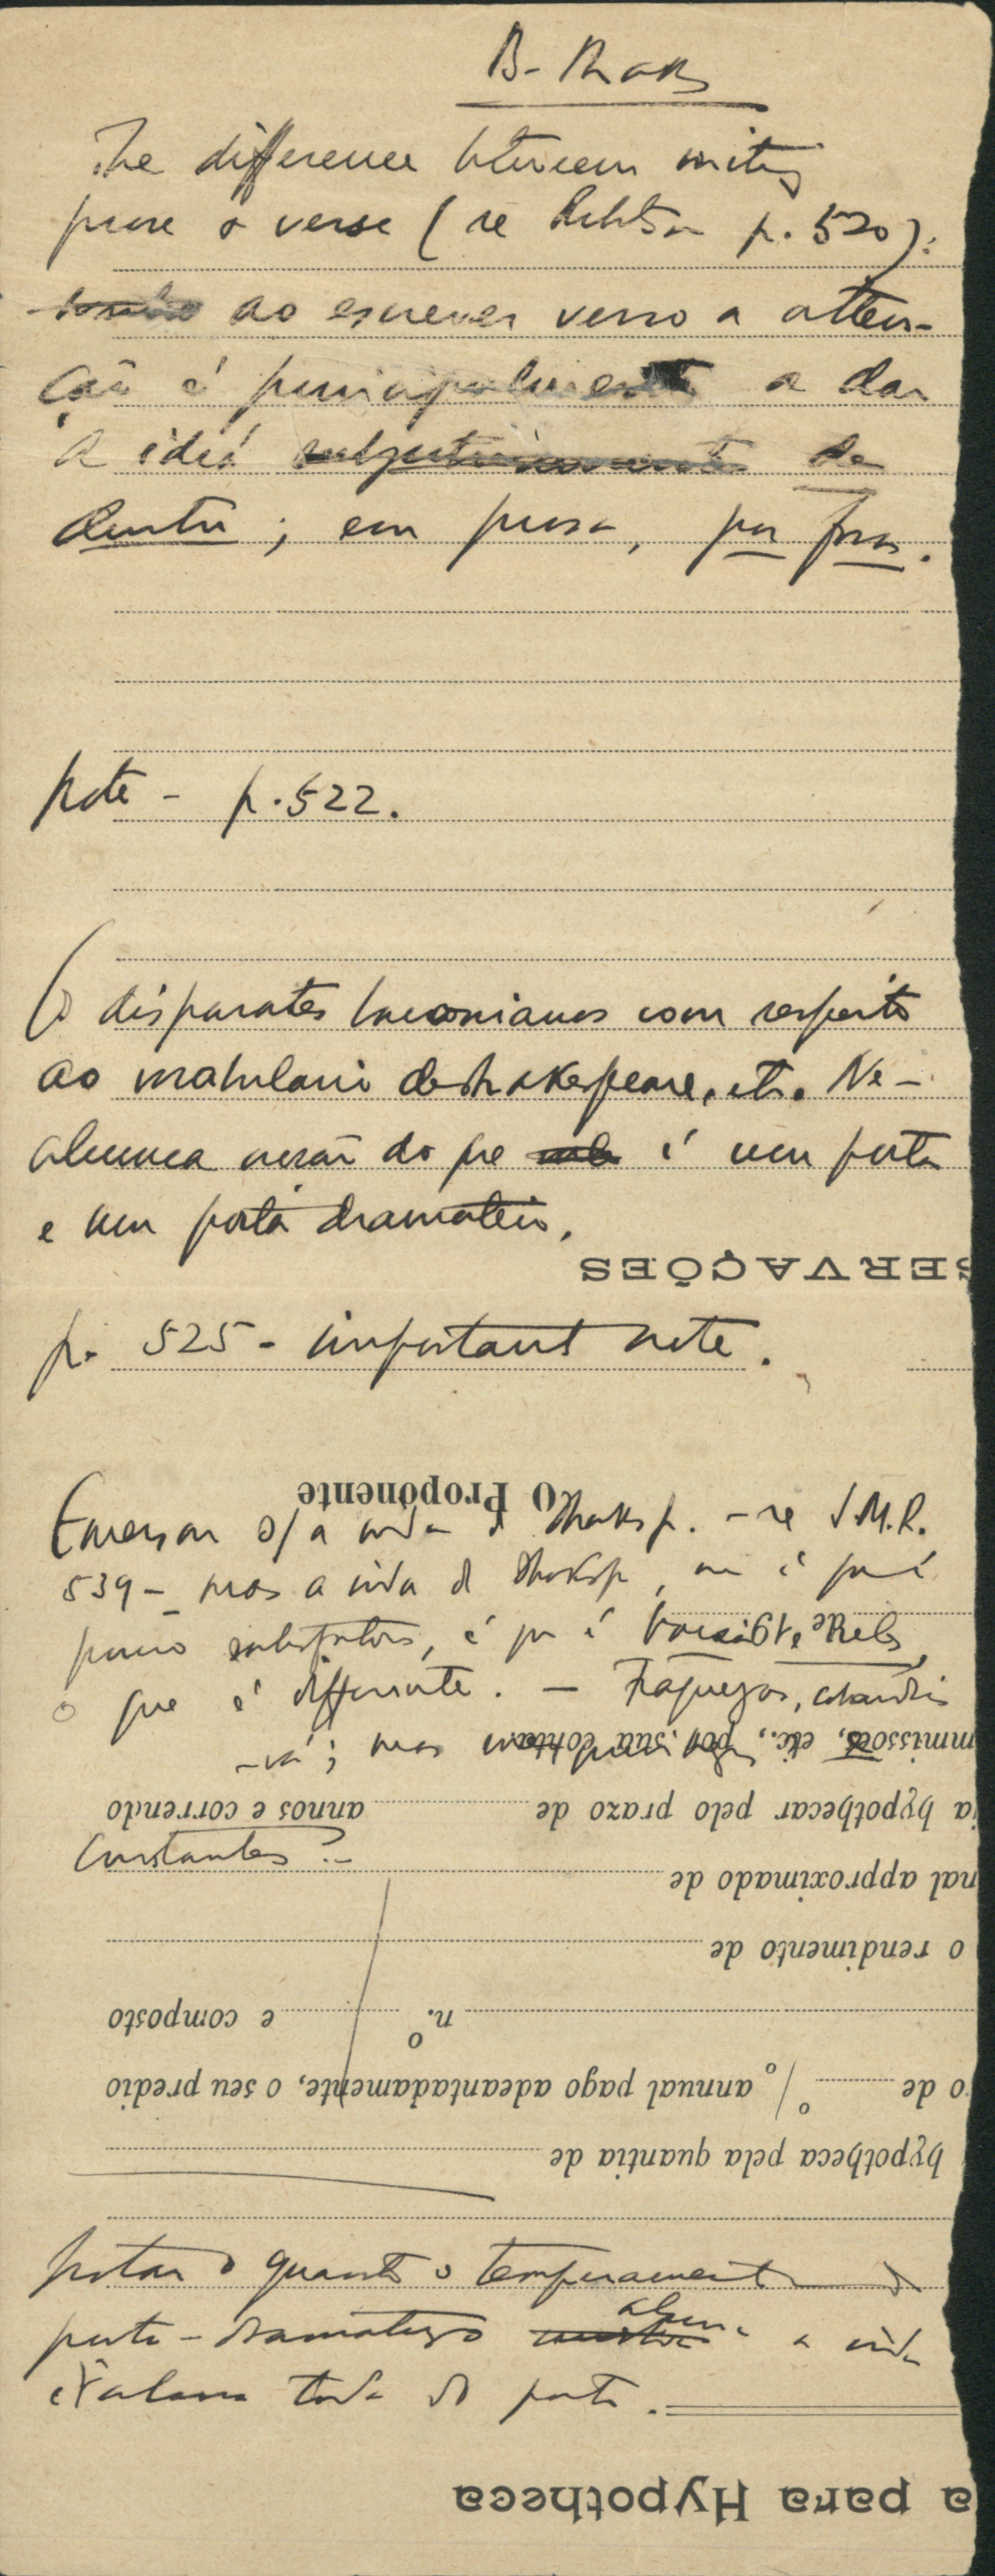 B- Shaks
The difference between writing
prose & verse (re p. 520):
ao escrever verso a atten-
ção é principalmente a dar
a ideá subjectivamente de
dentro; em prosa, por fora.
Note - p. 522.
Os disparates baconianos com respeito
ao vocabulario de Shakespeare, etc. Ne-
nhuma do que é um poeta
e um poeta dramatico.
SERVAÇÕES
p. 525 - important note.
O Proponente
Emerson s/ a vida de Shaksp. - re J.M.R.
539 - mas a vida de Shaksp, não é que é
pouco satisfatoria, é que é
de 191
o que é differente. — Fraquezas,
mmissoes, etc., por sua conta
-vá; mas
ia hypothecar pelo prazo de annos e correndo
Constantes?
nal approximado de
o rendimento de
n.º e composto
o de º/o annual pago adeantadamente, o seu predio
hypotheca pela quantia de
Notar o quanto o temperamento do
poeta-dramaturgo a vida
toda do poeta.
a para Hypotheca